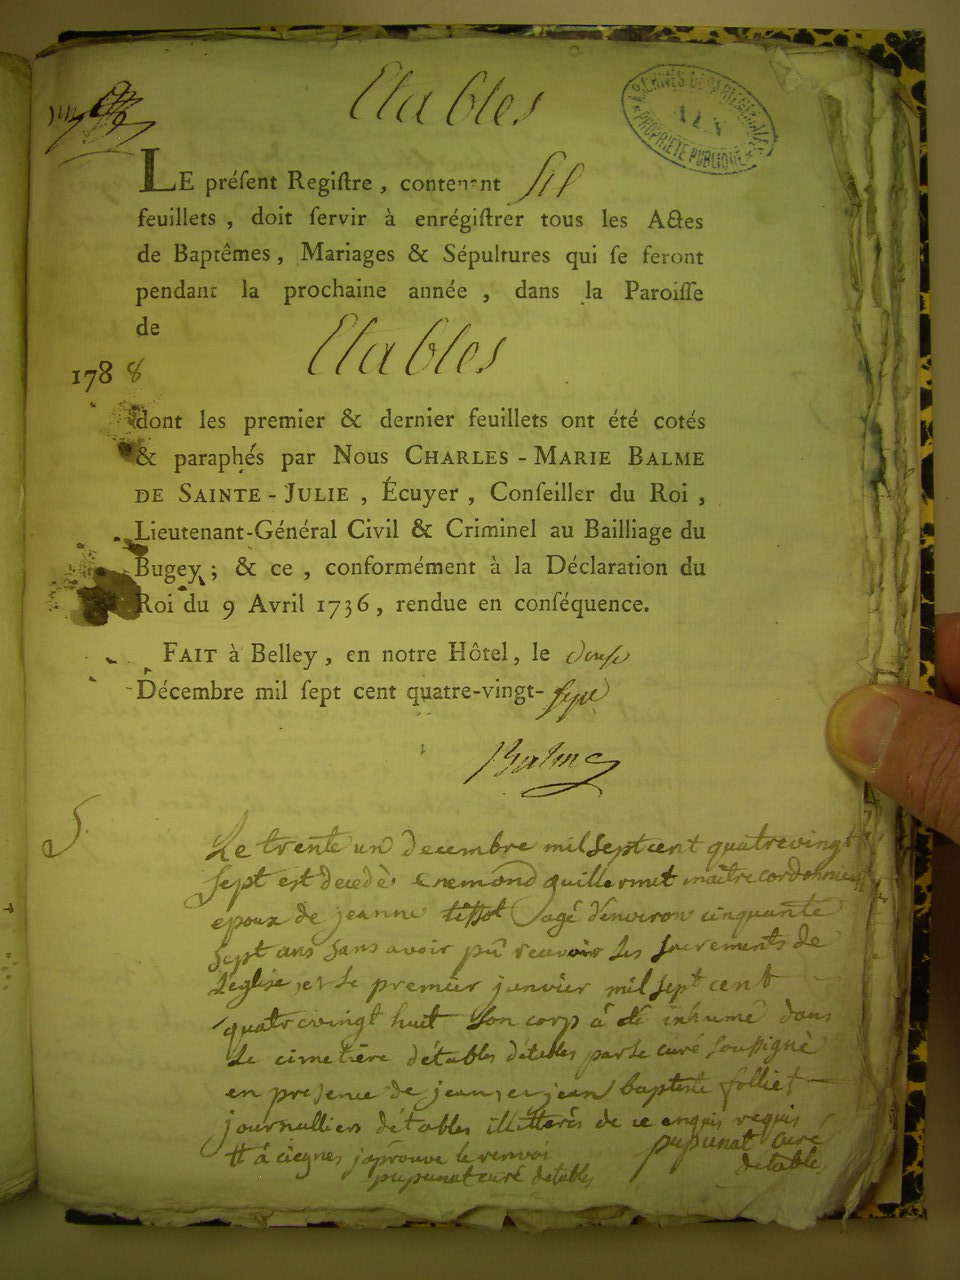 Etables
ARCHIVES DEPARTEMENTALES
AIN
PROPRIETE PUBLIQUE
LE préſent Regiſtre, contenant ſix
feuillets, doit ſervir à enrégiſtrer tous les Actes
de Baptêmes, Mariages & Sépultures qui ſe feront
pendant la prochaine année, dans la Paroiſſe
de Etables
1788
dont les premier & dernier feuillets ont été cotés
& paraphés par Nous CHARLES-MARIE BALME
DE SAINTE-JULIE, Écuyer, Conſeiller du Roi,
Lieutenant-Général Civil & Criminel au Bailliage du
Bugey; & ce, conformément à la Déclaration du
Roi du 9 Avril 1736, rendue en conſéquence.
FAIT à Belley, en notre Hôtel, le douſe
Décembre mil ſept cent quatre-vingt-ſept
Balme
S.
Le trente un decembre mil sept cent quatrevingt
sept est decedè enemond guillermet maitre cordonnier
epoux de jeanne tissot agé d'environ cinquante
sept ans sans avoir pû recevoir les sacrements de
l'église, et le premier janvier mil sept cent
quatrevingt huit son corp à été inhumé dans
le cimetière détables détables par le curé soussignè
en presence de jean, et jean baptiste folliet
journalliers détables illitterés de ce enquis requis
# à ciegnes j'aprouve le renvoi pupunat curé
pupunat curé detables detables